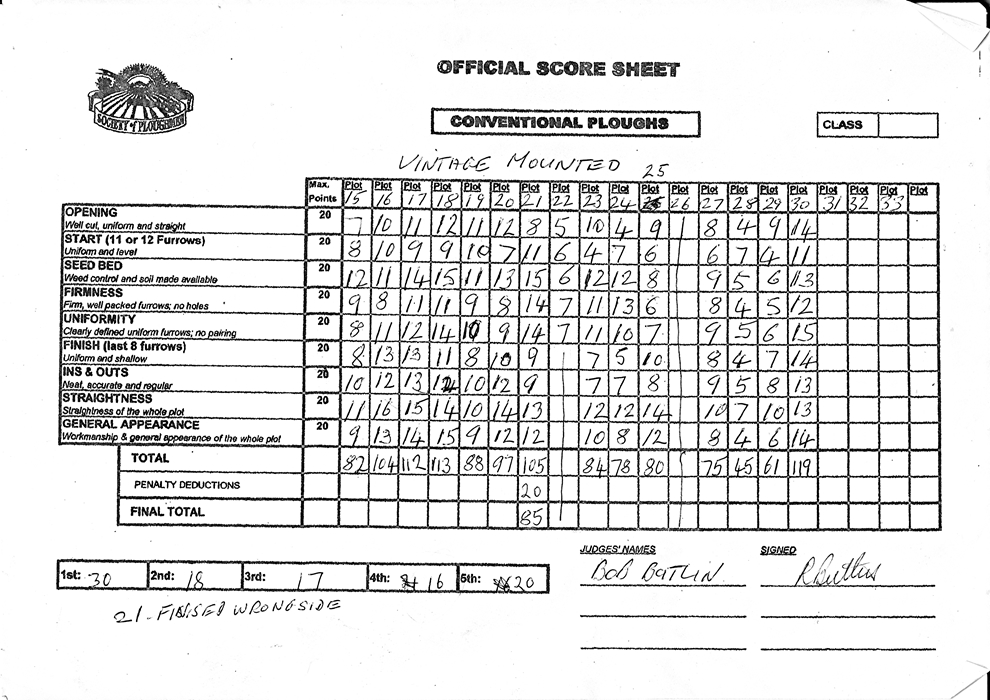 OFFICIAL SCORE SHEET
SOCIETY of PLOUGHMEN
CONVENTIONAL PLOUGHS
CLASS
VINTAGE MOUNTED 25
Max. Points Plot Plot Plot Plot Plot Plot Plot Plot Plot Plot Plot Plot Plot Plot Plot Plot Plot Plot Plot Plot
15 16 17 18 19 20 21 22 23 24 26 27 28 29 30 31 32 33
OPENING 20 7 10 11 12 11 12 8 5 10 4 9 8 4 9 14
Well cut, uniform and straight
START (11 or 12 Furrows) 20 8 10 9 9 10 7 11 6 4 7 6 6 7 4 11
Uniform and level
SEED BED 20 12 11 14 15 11 13 15 6 12 12 8 9 5 6 13
Weed control and soil made available
FIRMNESS 20 9 8 11 11 9 8 14 7 11 13 6 8 4 5 12
Firm, well packed furrows; no holes
UNIFORMITY 20 8 11 12 14 10 9 14 7 11 10 7 9 5 6 15
Clearly defined uniform furrows; no pairing
FINISH (last 8 furrows) 20 8 13 13 11 8 10 9 7 5 10 8 4 7 14
Uniform and shallow
INS & OUTS 20 10 12 13 12 10 12 9 7 7 8 9 5 8 13
Neat, accurate and regular
STRAIGHTNESS 20 11 16 15 14 10 14 13 12 12 14 10 7 10 13
Straightness of the whole plot
GENERAL APPEARANCE 20 9 13 14 15 9 12 12 10 8 12 8 4 6 14
Workmanship & general appearance of the whole plot
TOTAL 82 104 112 113 88 97 105 84 78 80 75 45 61 119
PENALTY DEDUCTIONS 20
FINAL TOTAL 85
JUDGES' NAMES SIGNED
BOB BUTLIN R Butlin
1st: 30 2nd: 18 3rd: 17 4th: 16 5th: 20
21 - FINISED WRONGSIDE